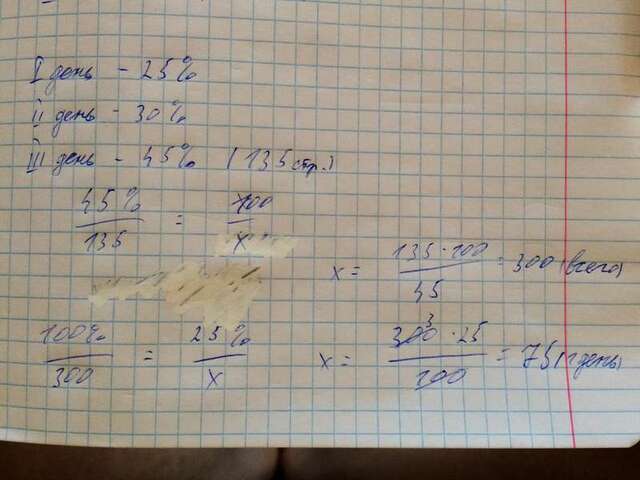 I день - 25%
II день - 30%
III день - 45% (135 стр.)
45% / 135 = 100 / x
x = 135 · 100 / 45 = 300 (всего)
100% / 300 = 25% / x
x = 300 3 · 25 / 100 = 75 (I день)